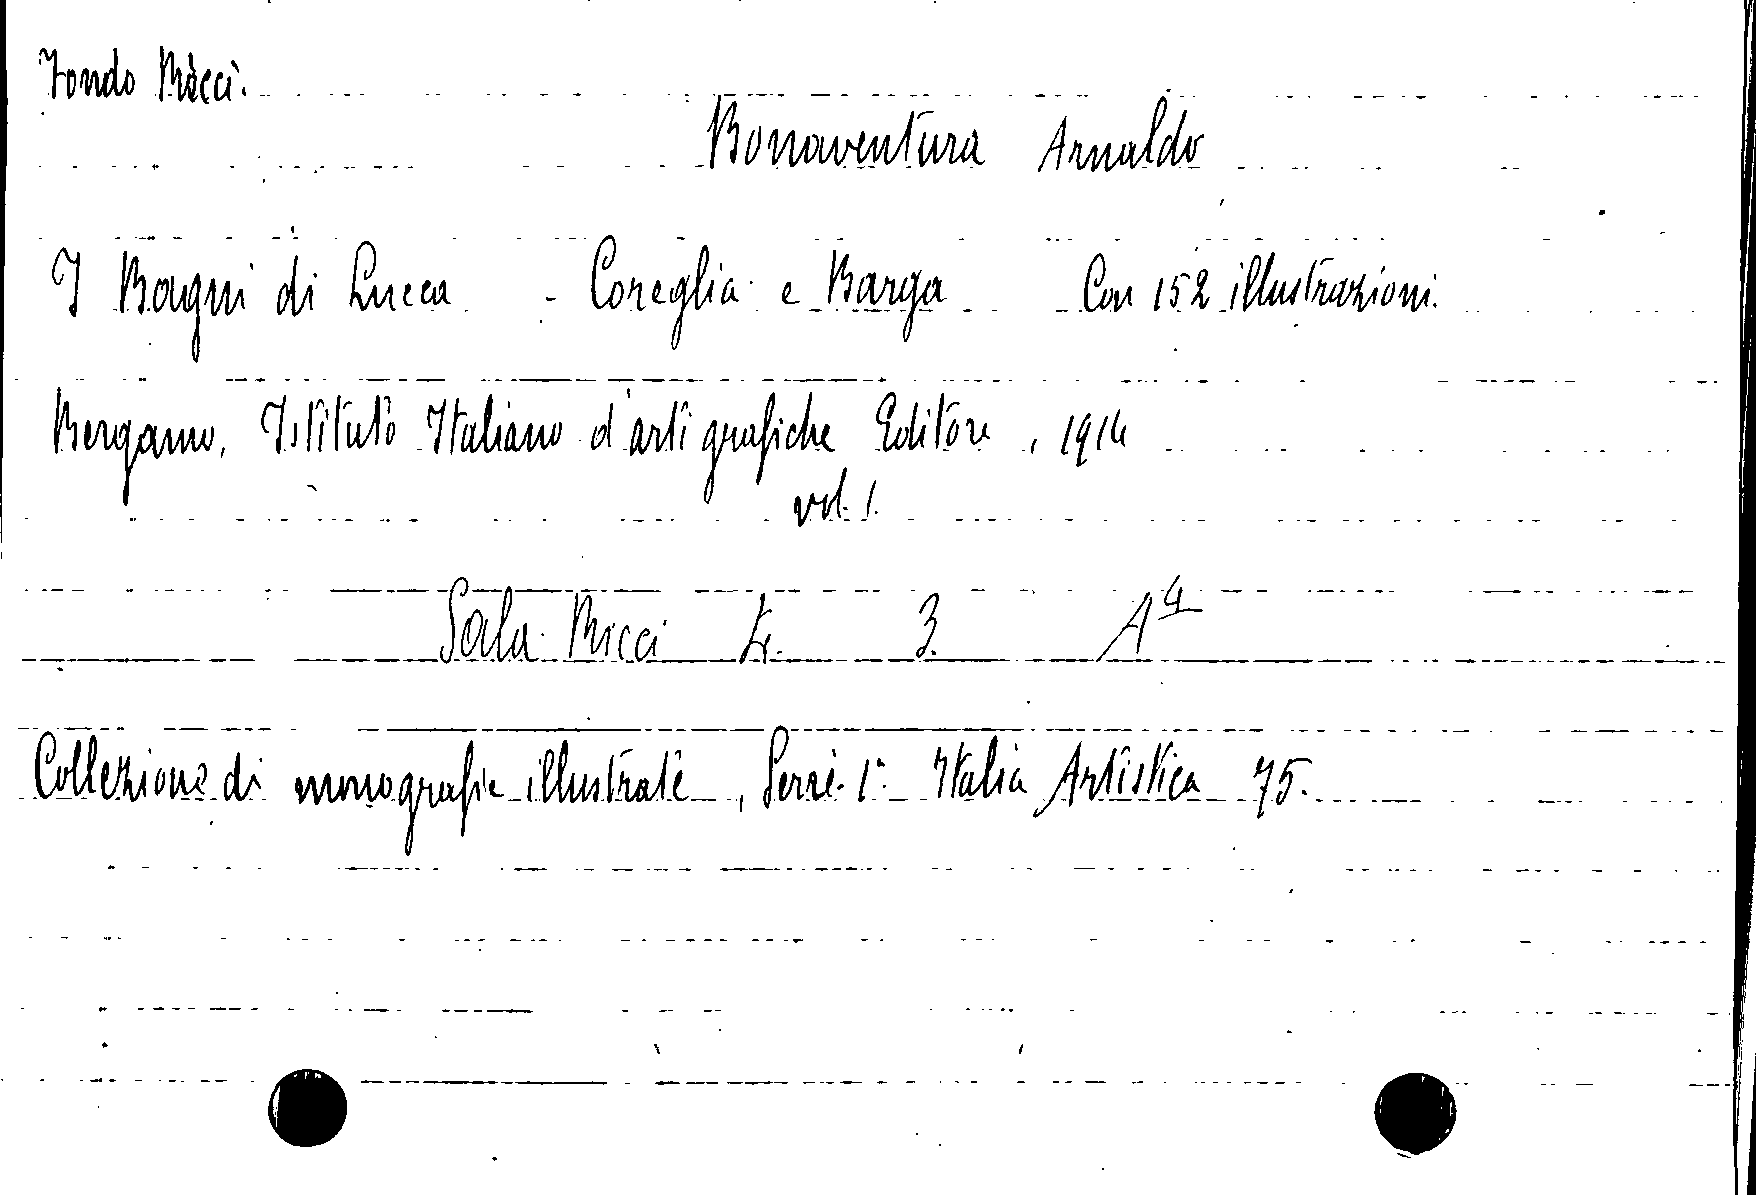 Fondo Ricci.
Bonaventura Arnaldo
I Bagni di Lucca - Coreglia e Barga Con 152 illustrazioni.
Bergamo, Istituto Italiano d'arti grafiche Editore, 1914
vol. 1.
Sala Ricci 3. A 4
Collezione di monografie illustrate, Serie 1ª Italia Artistica 75.